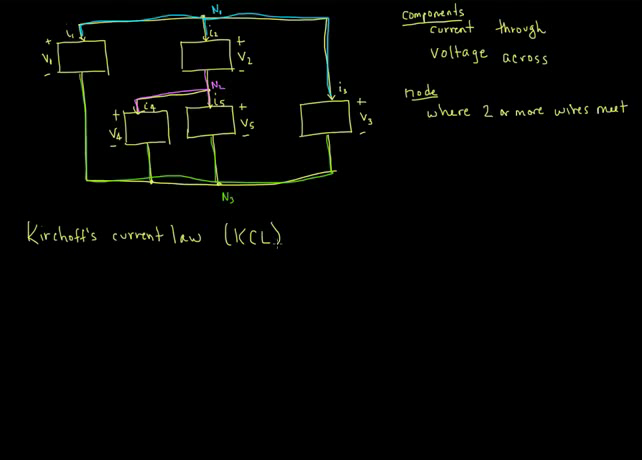 N₁
i₁
i₂
+
V₁
-
+
V₂
-
N₂
i₄
i₅
i₃
+
V₄
-
+
V₅
-
+
V₃
-
N₃
Components
current through
Voltage across
node
where 2 or more wires meet
Kirchoff's current law (KCL)